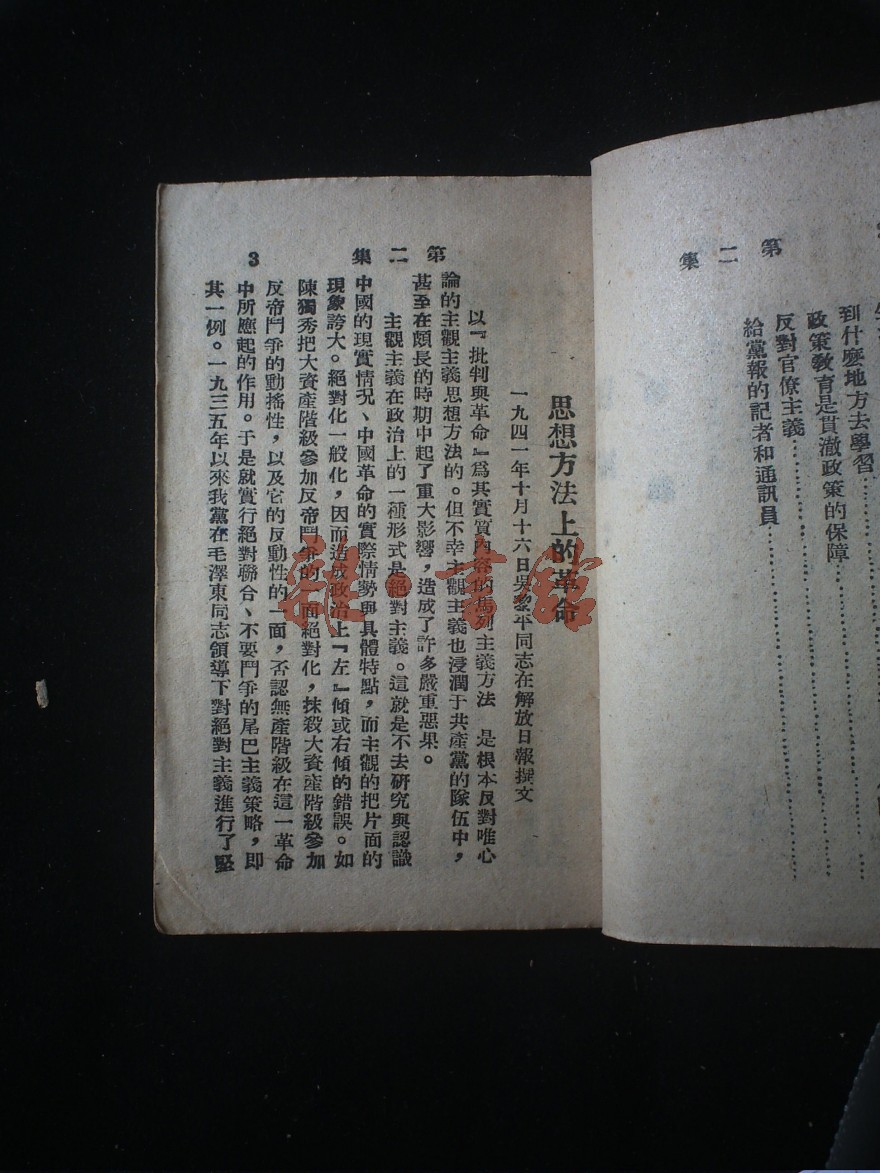 第二集
到什麼地方去學習
政策敎育是貫澈政策的保障
反對官僚主義
給黨報的記者和通訊員
思想方法上的革命
一九四一年十月十六日吳黎平同志在解放日報撰文
以『批判與革命』爲其實質內容的馬列主義方法 是根本反對唯心
論的主觀主義思想方法的。但不幸主觀主義也浸潤于共產黨的隊伍中，
甚至在頗長的時期中起了重大影響，造成了許多嚴重惡果。
主觀主義在政治上的一種形式是絕對主義。這就是不去研究與認識
中國的現實情况、中國革命的實際情勢與具體特點，而主觀的把片面的
現象誇大。絕對化一般化，因而造成政治上『左』傾或右傾的錯誤。如
陳獨秀把大資產階級參加反帝鬥爭的一面絕對化，抹殺大資產階級參加
反帝鬥爭的動搖性，以及它的反動性的一面，否認無產階級在這一革命
中所應起的作用。于是就實行絕對聯合、不要鬥爭的尾巴主義策略，卽
其一例。一九三五年以來我黨在毛澤東同志領導下對絕對主義進行了堅
第二集
3
龍·書館